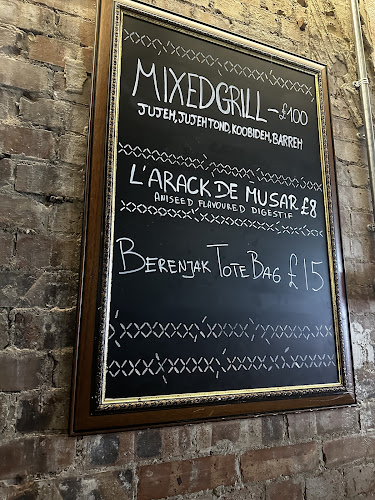 MIXED GRILL - £100
JUJEH, JUJEH TOND, KOOBIDEH, BARREH
L'ARACK DE MUSAR £8
ANISEED FLAVOURED DIGESTIF
BERENJAK TOTE BAG £15